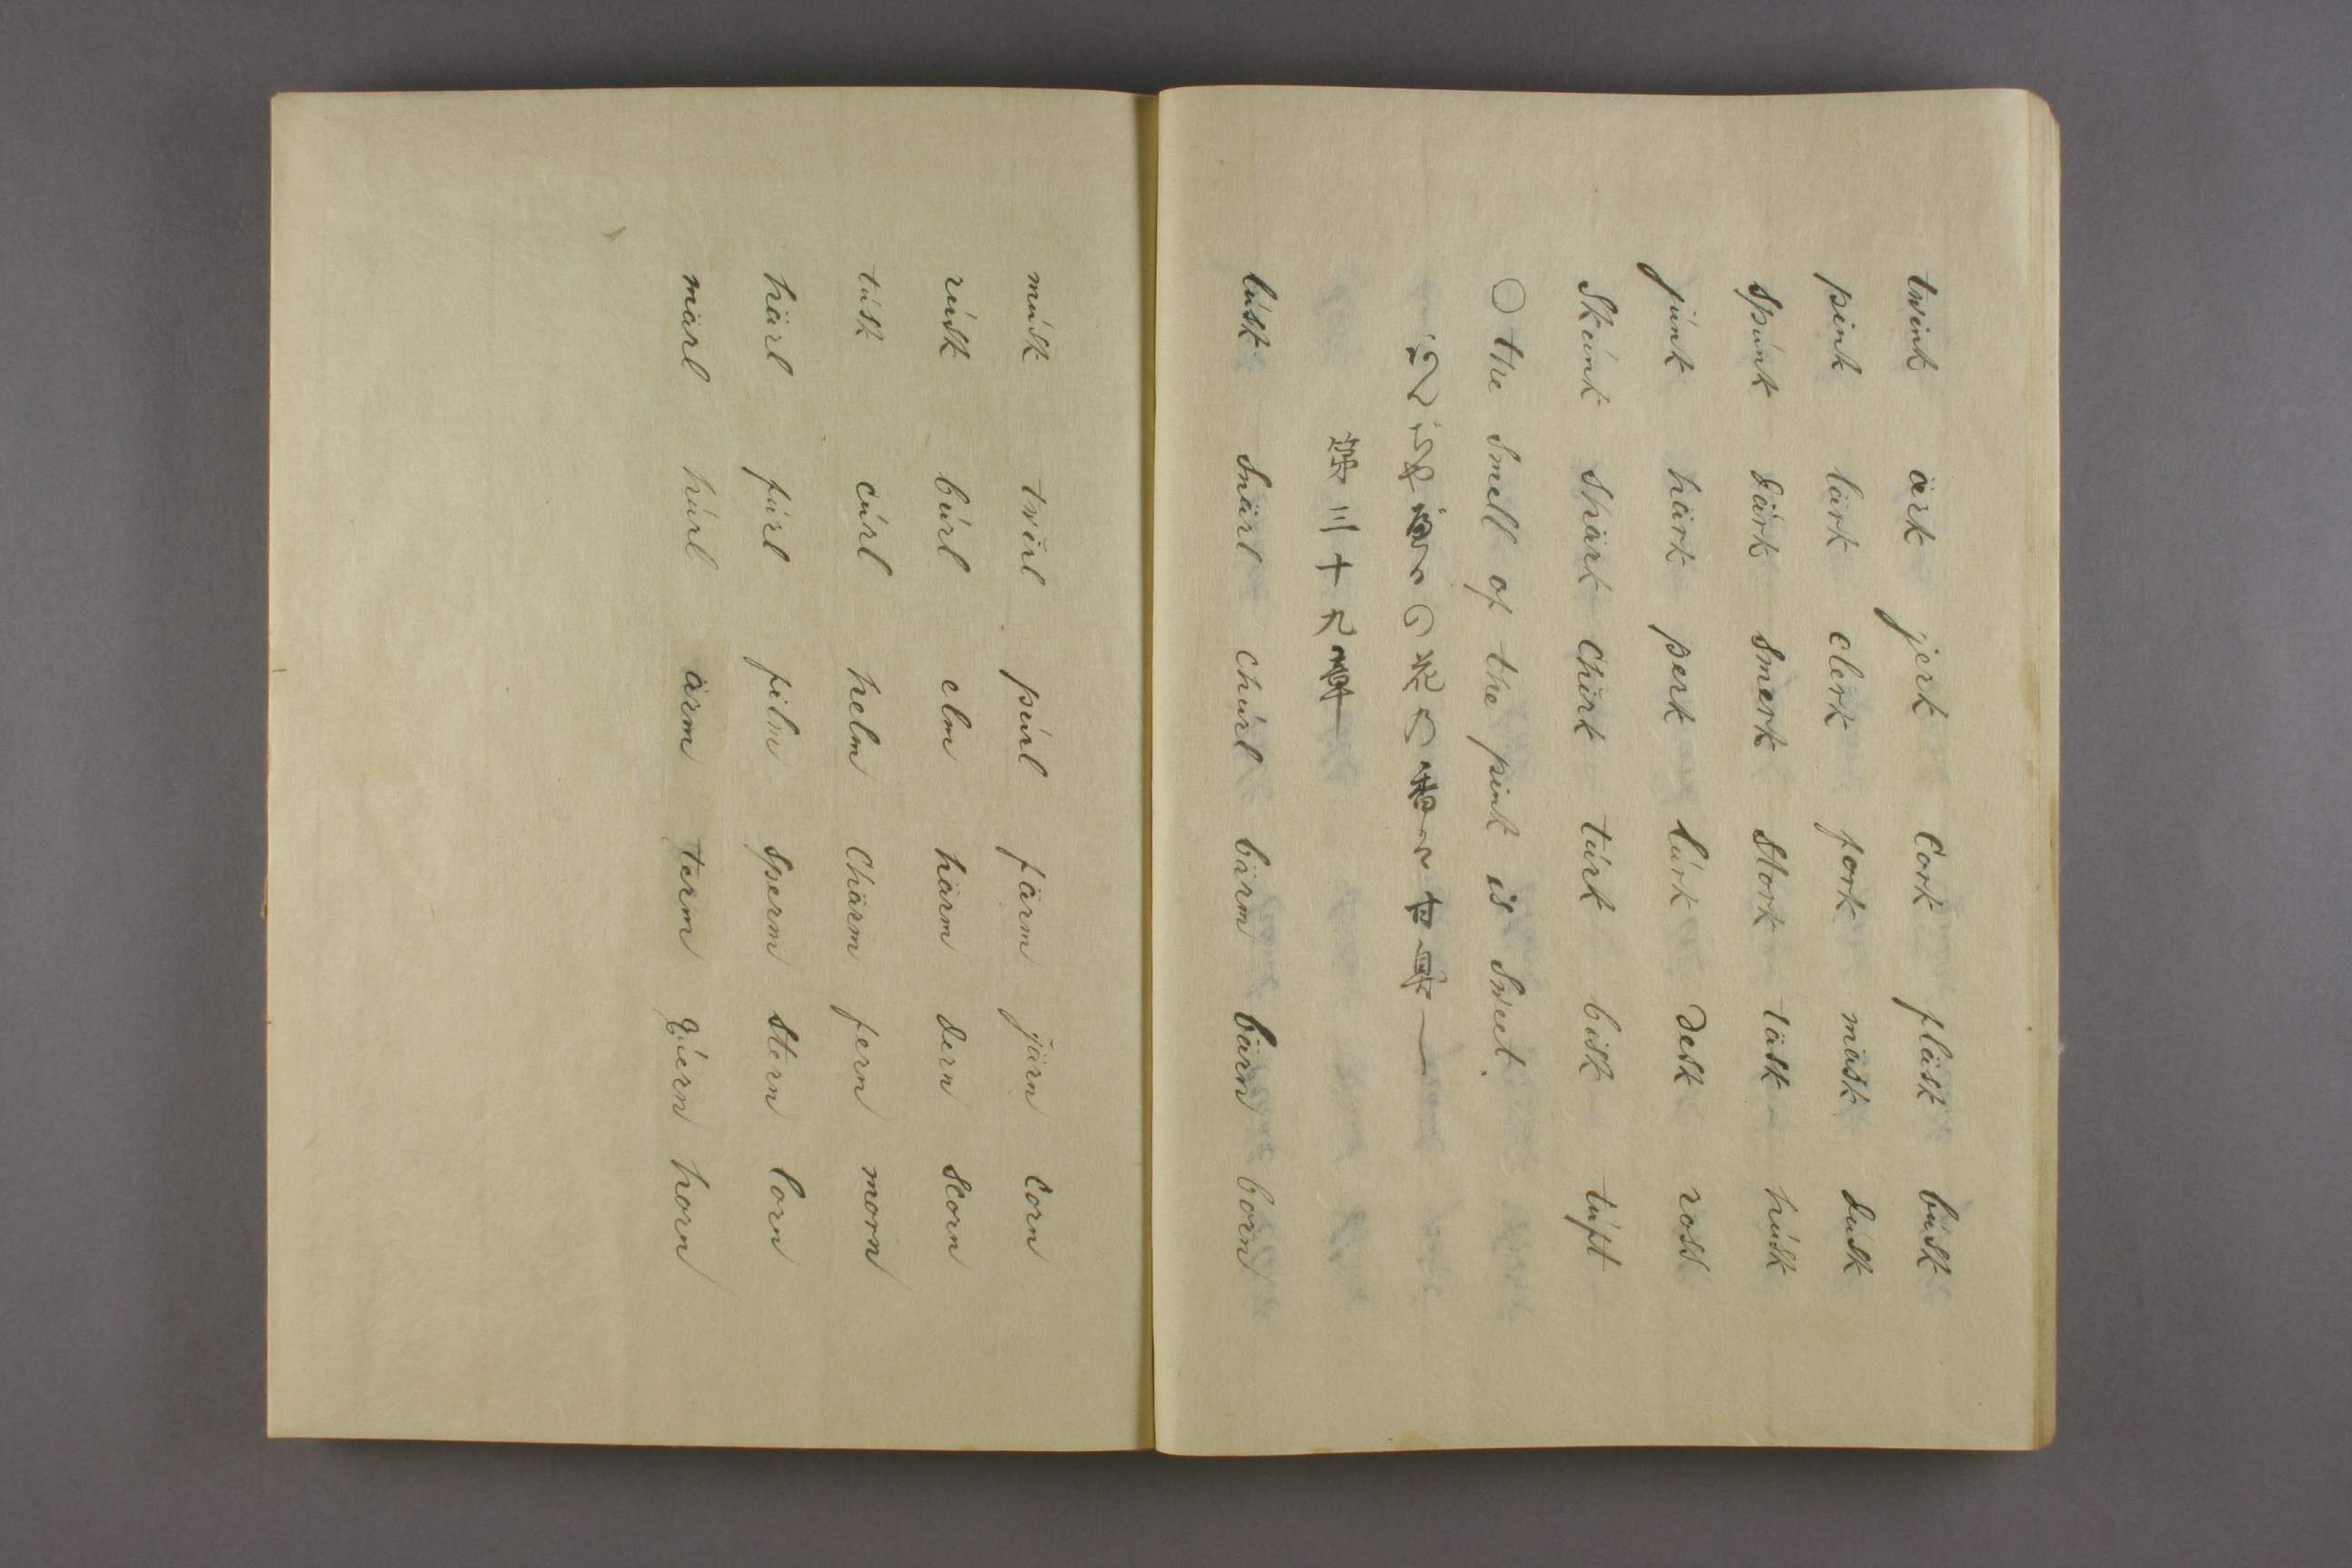 twink ärk jerk Cork fläsk búsk
pink lärk clerk fork mäsk dusk
spúnk därk smerk stork täsk húsk
júnk härk perk lúrk desk ross
Skúnk shärk chirk túrk bisk túft
○ the smell of the pink is sweet.
の花の香ハ甘臭
第三十九章
lúsk snärl chúrl bärm bärn born
músk twirl púrl färm järn Corn
rúsk búrl elm härm dern scorn
túsk cúrl helm Chärm fern morn
härl fúrl film sperm stern lorn
märl húrl ärm term qúern horn